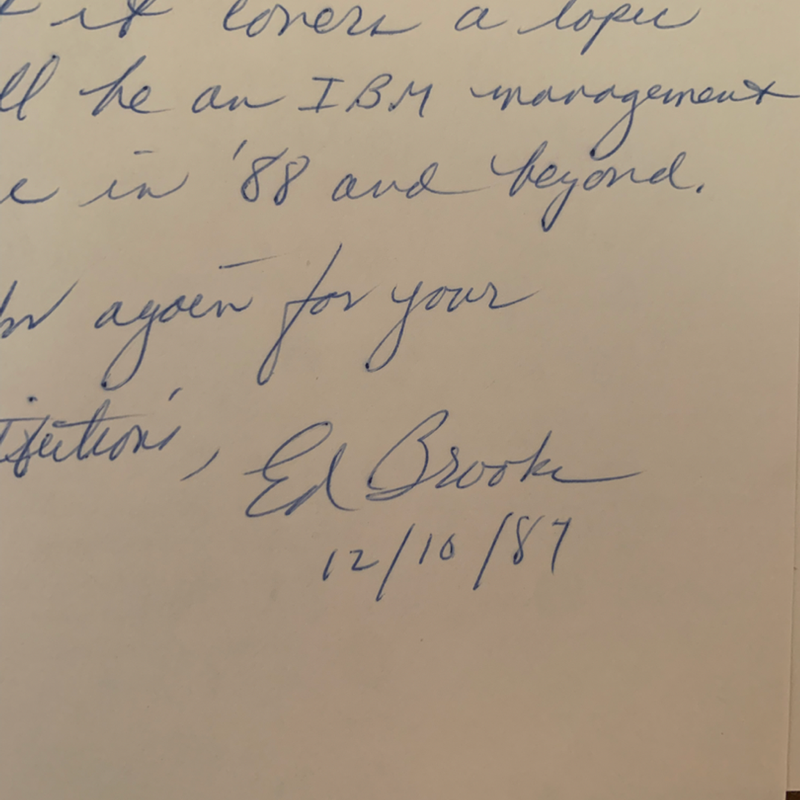 it covers a topic
ll be an IBM management
e in '88 and beyond.
again for your
Ed Brooke
12/10/87